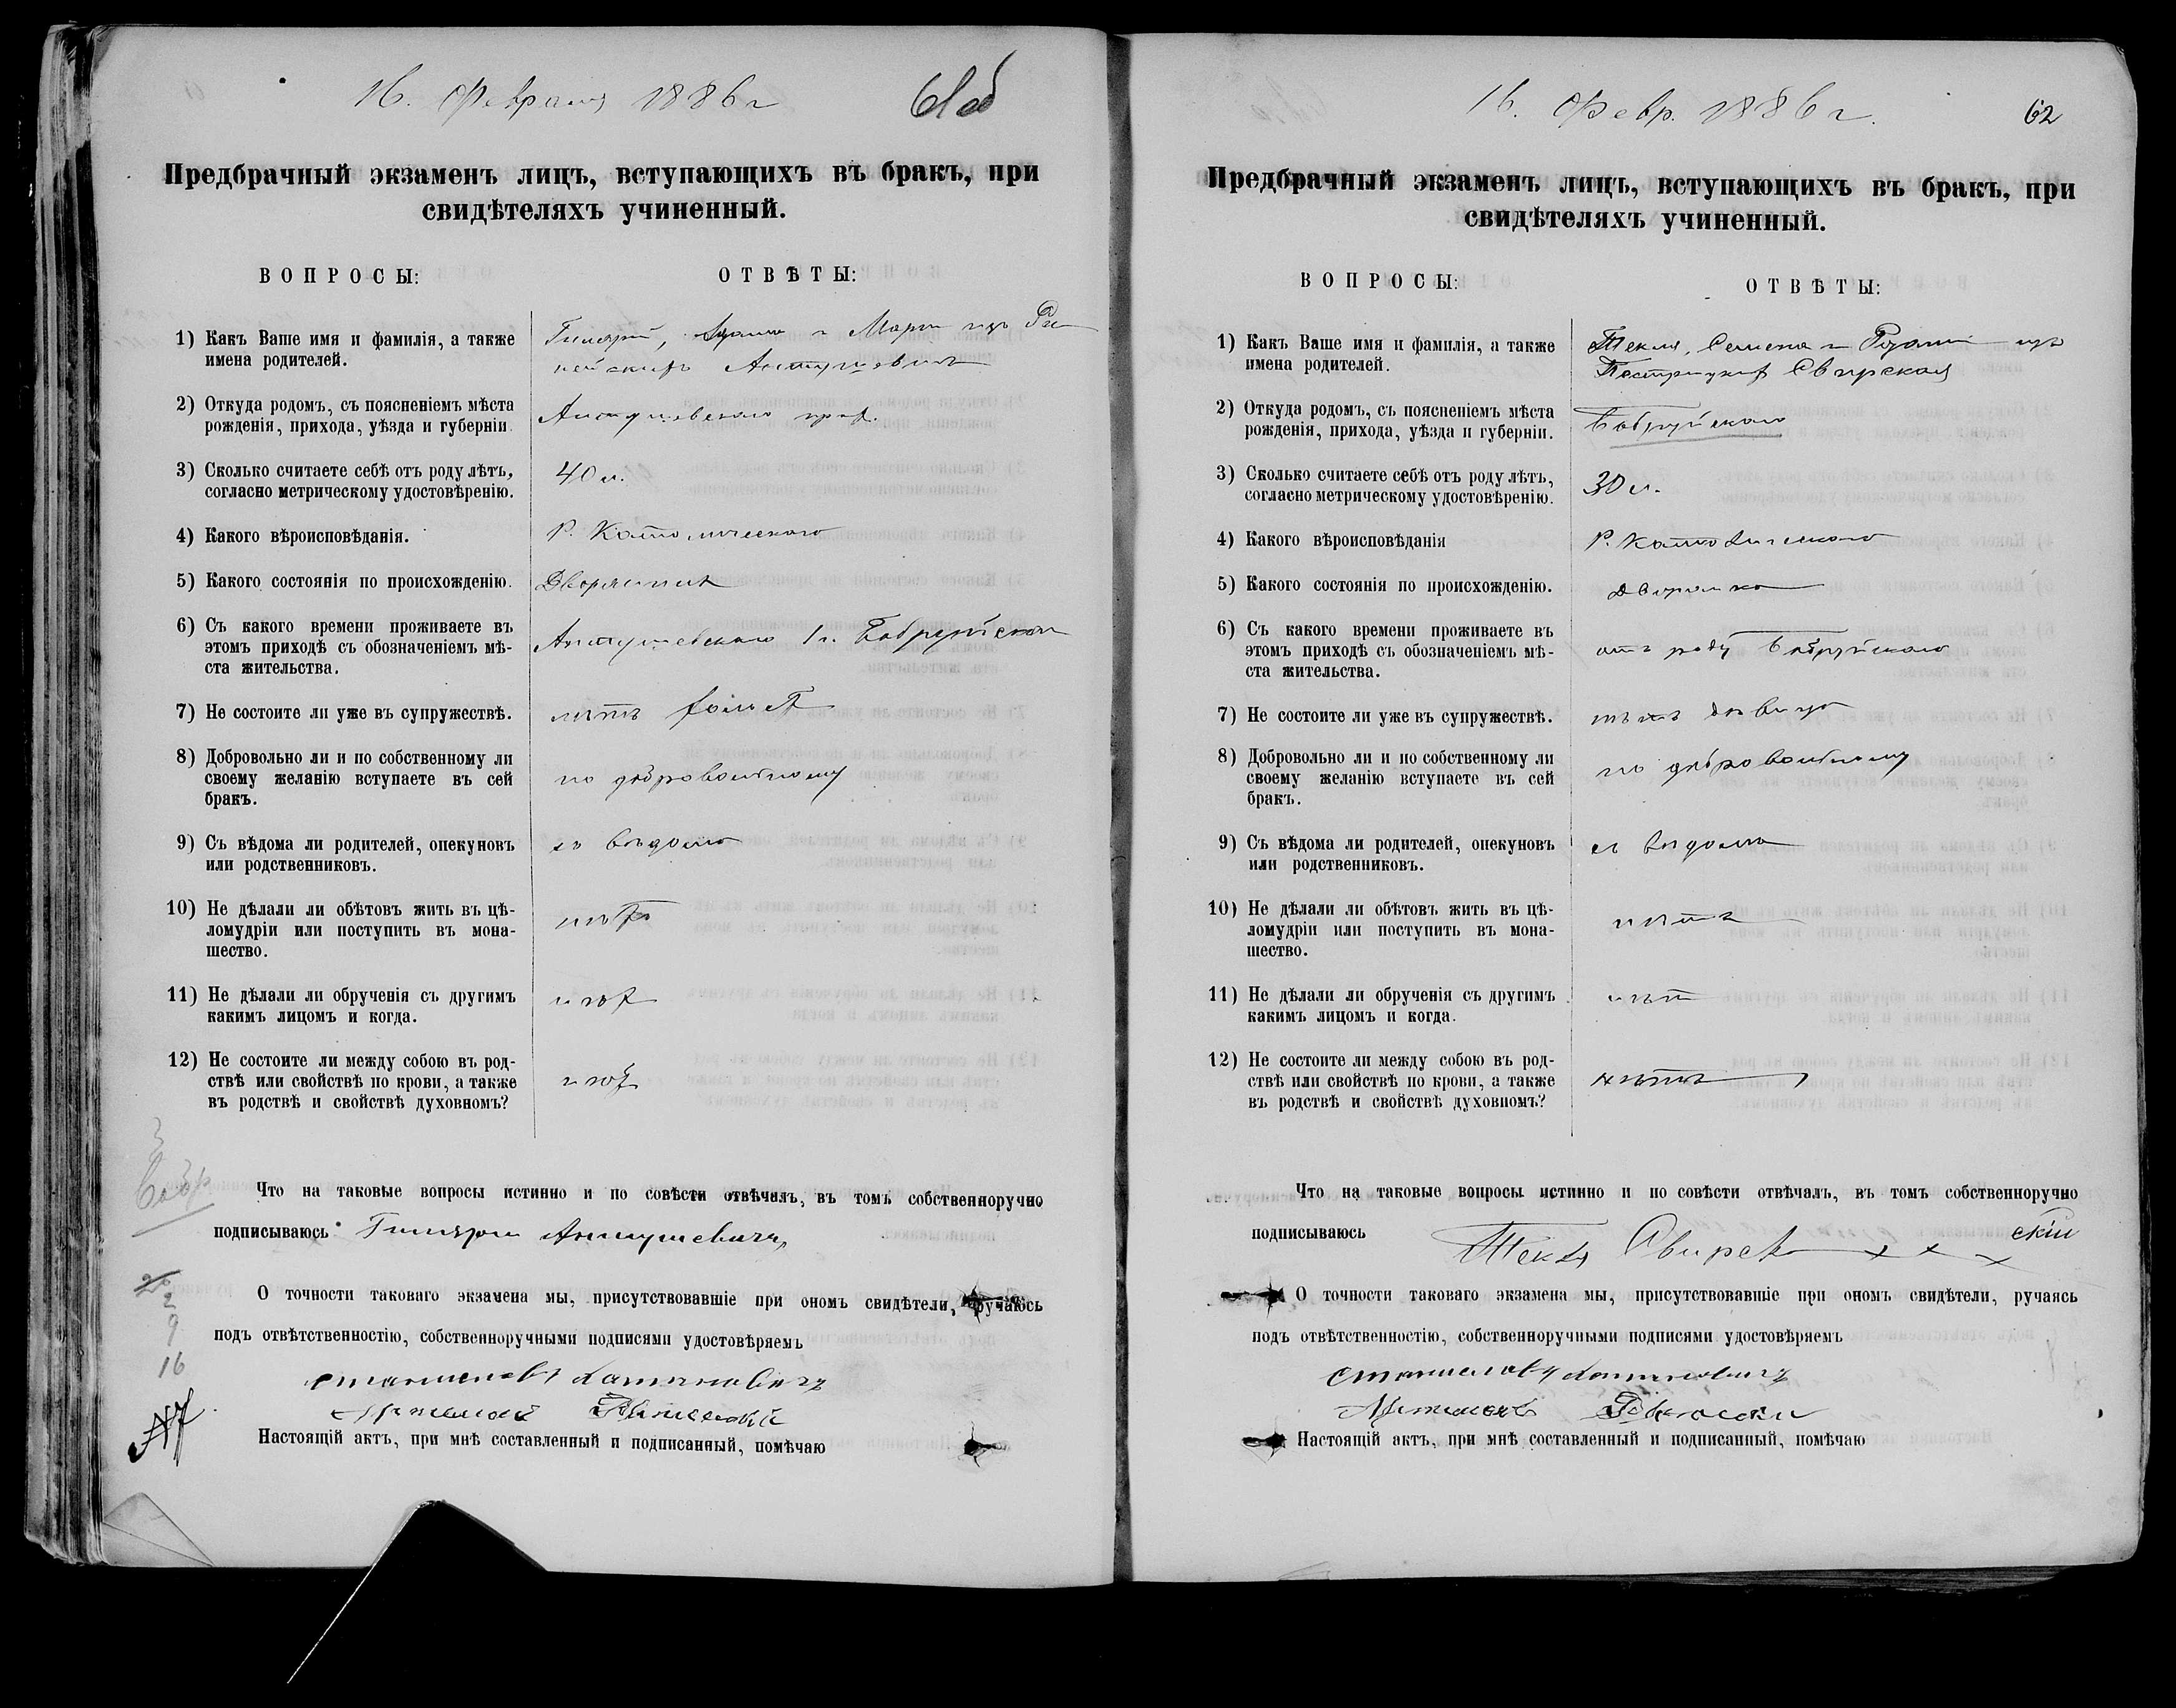 16. Февраля 1886 г
61 об
Предбрачный экзаменъ лицъ, вступающихъ въ бракъ, при
свидѣтеляхъ учиненный.
ВОПРОСЫ:
ОТВѢТЫ:
1) Какъ Ваше имя и фамилія, а также
имена родителей.
Гиляри, Адама и Марiи изъ
Антушевичъ
2) Откуда родомъ, съ поясненіемъ мѣста
рожденія, прихода, уѣзда и губерніи.
Антушевского
3) Сколько считаете себѣ отъ роду лѣтъ,
согласно метрическому удостовѣренію.
40 л.
4) Какого вѣроисповѣданія.
Р. Католическаго
5) Какого состоянія по происхожденію.
Дворянинъ
6) Съ какого времени проживаете въ
этомъ приходѣ съ обозначеніемъ мѣ-
ста жительства.
Антушевскаго 1 г. Бобруйскаго
7) Не состоите ли уже въ супружествѣ.
нѣтъ холостъ
8) Добровольно ли и по собственному ли
своему желанію вступаете въ сей
бракъ.
по добровольному
9) Съ вѣдома ли родителей, опекуновъ
или родственниковъ.
съ вѣдома
10) Не дѣлали ли обѣтовъ жить въ цѣ-
ломудріи или поступить въ мона-
шество.
нѣтъ
11) Не дѣлали ли обрученія съ другимъ
какимъ лицомъ и когда.
нѣт
12) Не состоите ли между собою въ род-
ствѣ или свойствѣ по крови, а также
въ родствѣ и свойствѣ духовномъ?
нѣт
Бобр.
Что на таковые вопросы истинно и по совѣсти отвѣчалъ, въ томъ собственноручно
подписываюсь Гиляри Антушевичъ
2
9
16
О точности таковаго экзамена мы, присутствовавшіе при ономъ свидѣтели, ручаюсь
подъ отвѣтственностію, собственноручными подписями удостовѣряемъ
Станиславъ
Настоящій актъ, при мнѣ составленный и подписанный, помѣчаю
16. Февр. 1886 г.
62
Предбрачный экзаменъ лицъ, вступающихъ въ бракъ, при
свидѣтеляхъ учиненный.
ВОПРОСЫ:
ОТВѢТЫ:
1) Какъ Ваше имя и фамилія, а также
имена родителей.
Текля, Семена и Розалiи изъ
Свирская
2) Откуда родомъ, съ поясненіемъ мѣста
рожденія, прихода, уѣзда и губерніи.
Бобруйскаго
3) Сколько считаете себѣ отъ роду лѣтъ,
согласно метрическому удостовѣренію.
30 л.
4) Какого вѣроисповѣданія
Р. Католическаго
5) Какого состоянія по происхожденію.
дворянка
6) Съ какого времени проживаете въ
этомъ приходѣ съ обозначеніемъ мѣ-
ста жительства.
отъ роду Бобруйскаго
7) Не состоите ли уже въ супружествѣ.
нѣтъ дѣвица
8) Добровольно ли и по собственному ли
своему желанію вступаете въ сей
бракъ.
по добровольному
9) Съ вѣдома ли родителей, опекуновъ
или родственниковъ.
съ вѣдома
10) Не дѣлали ли обѣтовъ жить въ цѣ-
ломудріи или поступить въ мона-
шество.
нѣтъ
11) Не дѣлали ли обрученія съ другимъ
какимъ лицомъ и когда.
нѣт
12) Не состоите ли между собою въ род-
ствѣ или свойствѣ по крови, а также
въ родствѣ и свойствѣ духовномъ?
нѣтъ
Что на таковые вопросы истинно и по совѣсти отвѣчалъ, въ томъ собственноручно
подписываюсь Текля Свирск х х х
О точности таковаго экзамена мы, присутствовавшіе при ономъ свидѣтели, ручаясь
подъ отвѣтственностію, собственноручными подписями удостовѣряемъ
Станиславъ
Настоящій актъ, при мнѣ составленный и подписанный, помѣчаю